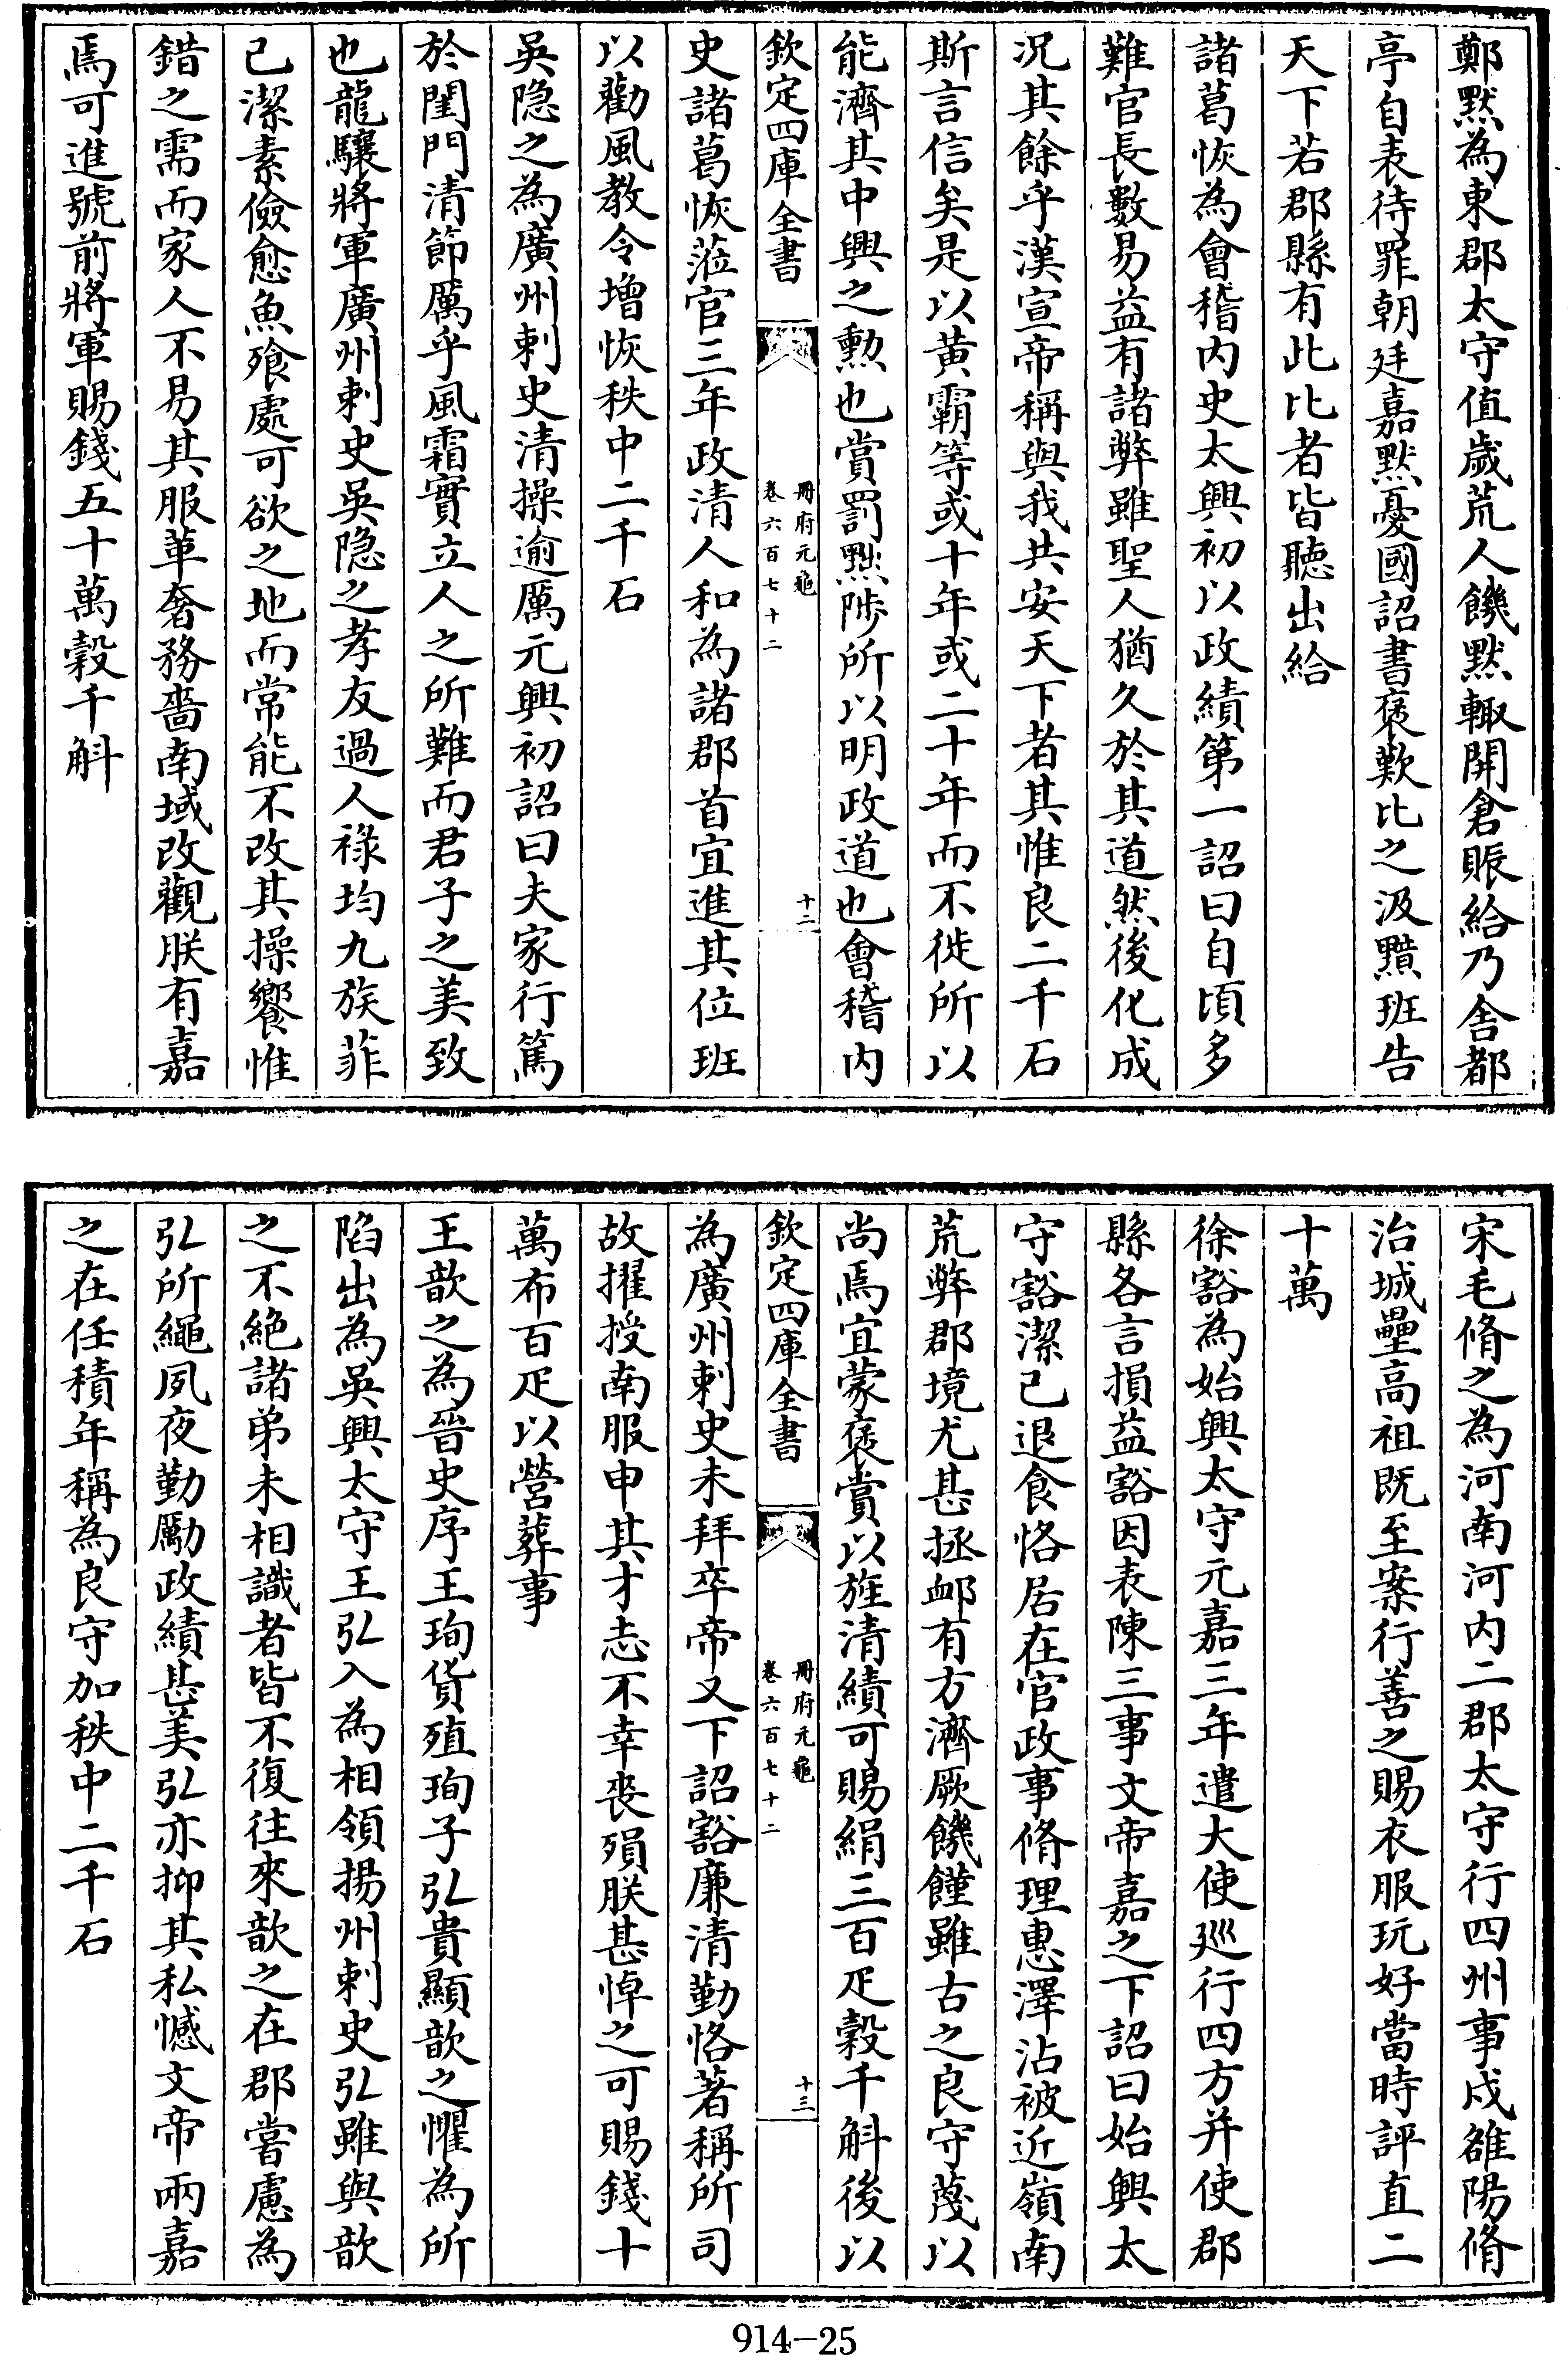 鄭黙為東郡太守值歲荒人饑黙輙開倉賑給乃舍都
亭自表待罪朝廷嘉黙憂國詔書褒歎比之汲黯班告
天下若郡縣有此比者皆聽出給
諸葛恢為會稽内史太興初以政績第一詔曰自頃多
難官長數易益有諸弊雖聖人猶久於其道然後化成
况其餘乎漢宣帝稱與我共安天下者其惟良二千石
斯言信矣是以黄霸等或十年或二十年而不徙所以
能濟其中興之勲也賞罰黜陟所以明政道也會稽内
欽定四庫全書
冊府元龜
卷六百七十二
十二
史諸葛恢莅官三年政清人和為諸郡首宜進其位班
以勸風教令増恢秩中二千石
吳隐之為廣州刺史清操逾厲元興初詔曰夫家行篤
於閨門清節厲乎風霜實立人之所難而君子之美致
也龍驤將軍廣州刺史吳隐之孝友過人祿均九族菲
己潔素儉愈魚飱處可欲之地而常能不改其操饗惟
錯之需而家人不易其服革奢務嗇南域改觀朕有嘉
焉可進號前將軍賜錢五十萬穀千斛
宋毛脩之為河南河内二郡太守行四州事戍雒陽脩
治城壘高祖既至案行善之賜衣服玩好當時評直二
十萬
徐豁為始興太守元嘉三年遣大使廵行四方并使郡
縣各言損益豁因表陳三事文帝嘉之下詔曰始興太
守豁潔己退食恪居在官政事脩理惠澤沾被近嶺南
荒弊郡境尤甚拯邮有方濟厥饑饉雖古之良守蔑以
尚焉宜蒙褒賞以旌清績可賜絹三百疋穀千斛後以
欽定四庫全書
冊府元龜
卷六百七十二
十三
為廣州刺史未拜卒帝又下詔豁廉清勤恪著稱所司
故擢授南服申其才志不幸喪殞朕甚悼之可賜錢十
萬布百疋以營葬事
王歆之為晉史序王珣貨殖珣子弘貴顯歆之懼為所
陷出為吳興太守王弘入為相領揚州刺史弘雖與歆
之不絶諸弟未相識者皆不復往來歆之在郡嘗慮為
弘所繩夙夜勤勵政績甚美弘亦抑其私憾文帝兩嘉
之在任積年稱為良守加秩中二千石
914-25